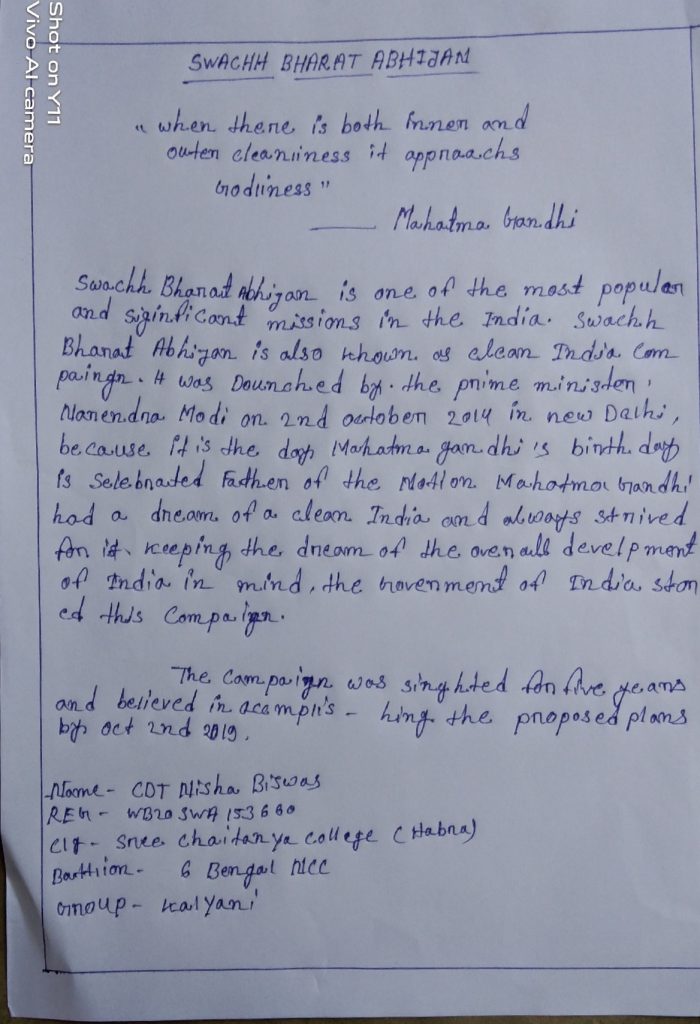 SWACHH BHARAT ABHIJAN
" when there is both inner and
outer cleanliness it appraachs
Godliness "
—— Mahatma Gandhi
Swachh Bharat Abhijan is one of the most popular
and siginficant missions in the India. Swachh
Bharat Abhiyan is also known as clean India Com
paingn. It was Dounched by. the prime minister,
Narendra Modi on 2nd october 2014 in new Dalhi,
because it is the day Mahatma gandhi's birth day
is Selebrated Father of the Nation Mahatma Gandhi
had a dream of a clean India and always strived
for it. keeping the dream of the overall develpment
of India in mind, the Government of India star
ed this Campaign.
The Campaign was singhted for five years
and believed in acamplis - hing the proposed plans
by oct 2nd 2019.
Name - CDT Nisha Biswas
REG - WB20 SWA 153660
Clg - Sree Chaitanya College (Habra)
6 Bengal NCC
Group - Kalyani
Shot on Y11
Vivo AI camera